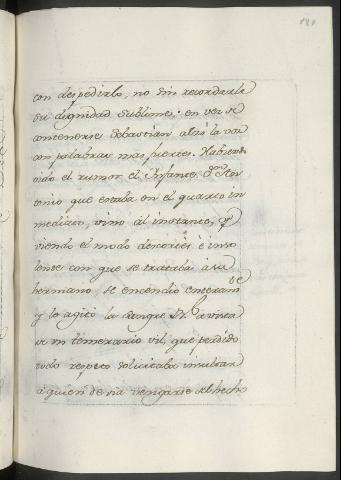 121
con despedirlo, no sin recordarle
su dignidad sublime; en vez de
contenerse Sebastian alzó la voz
con palabras mas fuertes. Habiendo
oido el rumor el Infante, Dn. Antonio
que estaba en el quarto in
mediato, vino al instante, y
viendo el modo descortés è inso
lente con que se trataba à su
hermano, se encendió enteramte
y le agitó la sangre Rl. à vista
de un temerario vil, que perdido
todo respeto solicitaba insultar
à quien devia vengarse del hecho